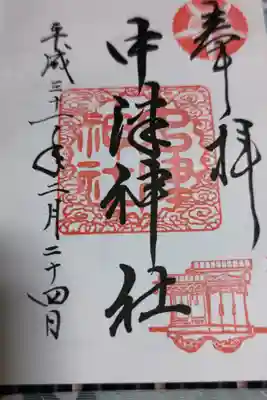 奉拝
中津神社
中津
神社
平成三十一年二月二十四日